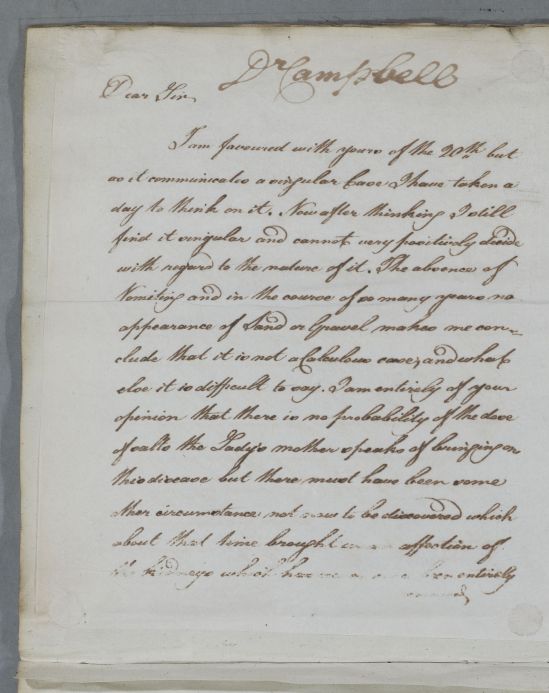 Dr Campbell
Dear Sir,
I am favoured with yours of the 20th but
as it communicates a singular Case I have taken a
day to think on it. Now after thinking I still
find it singular and cannot very positively decide
with regard to the nature of it. The absence of
Vomiting and in the course of so many years no
appearance of Sand or Gravel makes me con-
clude that it is not a Calculous case, and what
else it is difficult to say. I am entirely of your
opinion that there is no probability of the dose
of salts the Lady's mother speaks of bringing on
this disease but there must have been some
other circumstance not now to be discovered which
about that time brought on an affection of
the kidneys which has been entirely